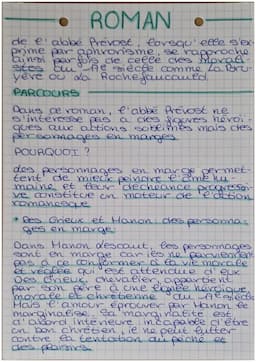 ROMAN
de l'abbé Prévost, lorsqu'elle s'ex-
prime par aphorisme, se rapproche
ainsi parfois de celle des morali-
stes du siècle comme La Bru-
yère ou La Rochefaucauld.
PARCOURS
Dans ce roman, l'abbé Prévost ne
s'intéresse pas à des figures héroï-
ques aux actions sublimes mais des
personnages en marges
POURQUOI ?
des personnages en marge permet-
tent de mieux peindre l'âme hu-
maine et leur déchéance progressi-
ve constitue un moteur de l'action
romanesque
• Des Grieux et Manon : des personna-
ges en marge
Dans Manon Lescaut, les personnages
sont en marge car ils ne parviennent
pas à se conformer à la vie morale
et réglée qui est attendue d'eux.
Des Grieux, chevalier, appartient
par son père à une lignée héroïque,
morale et chrétienne du siècle
Mais l'amour éprouvé par Manon le
marginalise. Sa marginalité est
d'abord intérieure : incapable d'être
un bon chrétien, il ne peut lutter
contre la tentation du péché et
des plaisirs.